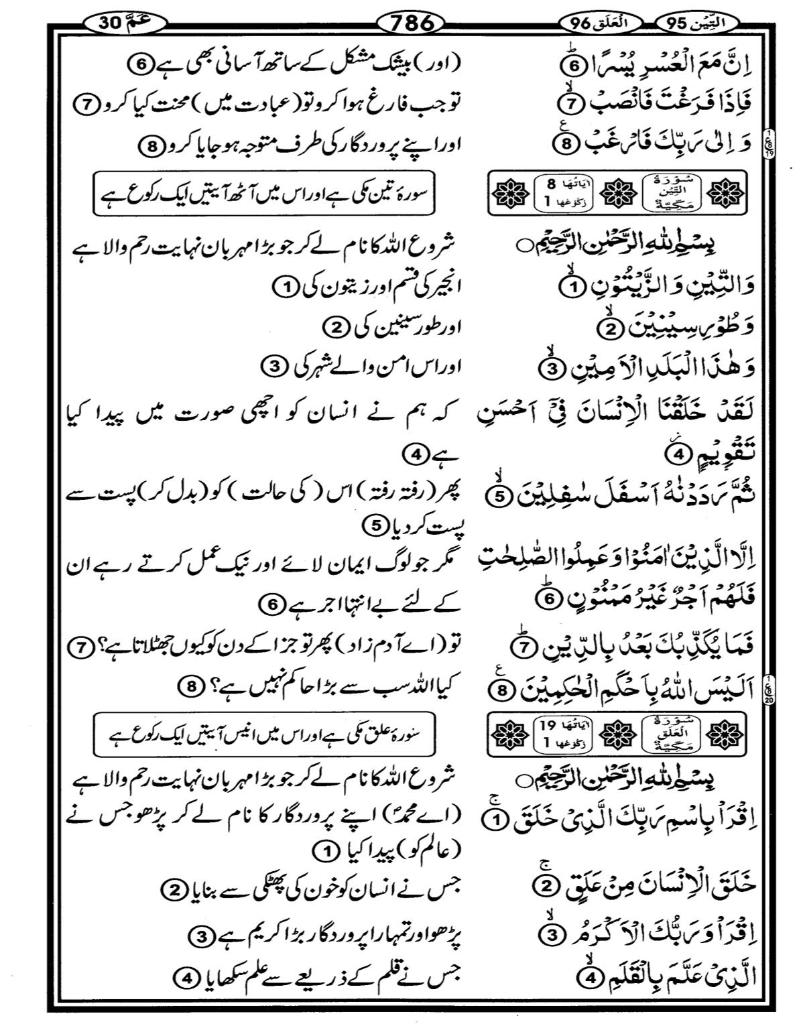 التِّيْن 95 الْعَلَق 96 786 عَمَّ 30
اِنَّ مَعَ الْعُسْرِ يُسْرًا ؕ ﴿6﴾ (اور) بیشک مشکل کے ساتھ آسانی بھی ہے ﴿6﴾
فَاِذَا فَرَغْتَ فَانْصَبْ ۙ ﴿7﴾ تو جب فارغ ہوا کرو تو (عبادت میں) محنت کیا کرو ﴿7﴾
وَ اِلٰى رَبِّكَ فَارْغَبْ ع ﴿8﴾ اور اپنے پروردگار کی طرف متوجہ ہو جایا کرو ﴿8﴾
سُوْرَةُ التِّيْنِ مَكِّيَّةٌ اٰيَاتُهَا 8 رُكُوْعُهَا 1 سورۂ تین مکی ہے اور اس میں آٹھ آیتیں ایک رکوع ہے
بِسْمِ اللهِ الرَّحْمٰنِ الرَّحِيْمِ ○ شروع اللہ کا نام لے کر جو بڑا مہربان نہایت رحم والا ہے
وَ التِّيْنِ وَ الزَّيْتُوْنِ ۙ ﴿1﴾ انجیر کی قسم اور زیتون کی ﴿1﴾
وَ طُوْرِ سِيْنِيْنَ ۙ ﴿2﴾ اور طور سینین کی ﴿2﴾
وَ هٰذَا الْبَلَدِ الْاَمِيْنِ ۙ ﴿3﴾ اور اس امن والے شہر کی ﴿3﴾
لَقَدْ خَلَقْنَا الْاِنْسَانَ فِىْۤ اَحْسَنِ کہ ہم نے انسان کو اچھی صورت میں پیدا کیا
تَقْوِيْمٍ ؗ ﴿4﴾ ہے ﴿4﴾
ثُمَّ رَدَدْنٰهُ اَسْفَلَ سٰفِلِيْنَ ۙ ﴿5﴾ پھر (رفتہ رفتہ) اس (کی حالت) کو (بدل کر) پست سے
پست کر دیا ﴿5﴾
اِلَّا الَّذِيْنَ اٰمَنُوْا وَ عَمِلُوا الصّٰلِحٰتِ مگر جو لوگ ایمان لائے اور نیک عمل کرتے رہے ان
فَلَهُمْ اَجْرٌ غَيْرُ مَمْنُوْنٍ ؕ ﴿6﴾ کے لئے بے انتہا اجر ہے ﴿6﴾
فَمَا يُكَذِّبُكَ بَعْدُ بِالدِّيْنِ ؕ ﴿7﴾ تو (اے آدم زاد) پھر تو جزا کے دن کو کیوں جھٹلاتا ہے؟ ﴿7﴾
اَلَيْسَ اللّٰهُ بِاَحْكَمِ الْحٰكِمِيْنَ ع ﴿8﴾ کیا اللہ سب سے بڑا حاکم نہیں ہے؟ ﴿8﴾
سُوْرَةُ الْعَلَقِ مَكِّيَّةٌ اٰيَاتُهَا 19 رُكُوْعُهَا 1 سورۂ علق مکی ہے اور اس میں انیس آیتیں ایک رکوع ہے
بِسْمِ اللهِ الرَّحْمٰنِ الرَّحِيْمِ ○ شروع اللہ کا نام لے کر جو بڑا مہربان نہایت رحم والا ہے
اِقْرَاْ بِاسْمِ رَبِّكَ الَّذِىْ خَلَقَ ۚ ﴿1﴾ (اے محمدؐ) اپنے پروردگار کا نام لے کر پڑھو جس نے
(عالم کو) پیدا کیا ﴿1﴾
خَلَقَ الْاِنْسَانَ مِنْ عَلَقٍ ۚ ﴿2﴾ جس نے انسان کو خون کی پھٹکی سے بنایا ﴿2﴾
اِقْرَاْ وَ رَبُّكَ الْاَكْرَمُ ۙ ﴿3﴾ پڑھو اور تمہارا پروردگار بڑا کریم ہے ﴿3﴾
الَّذِىْ عَلَّمَ بِالْقَلَمِ ۙ ﴿4﴾ جس نے قلم کے ذریعے سے علم سکھایا ﴿4﴾